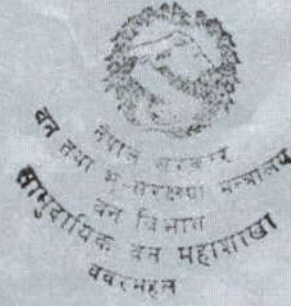 नेपाल सरकार
वन तथा भू-संरक्षण मन्त्रालय
वन विभाग
सामुदायिक वन महाशाखा
ववरमहल